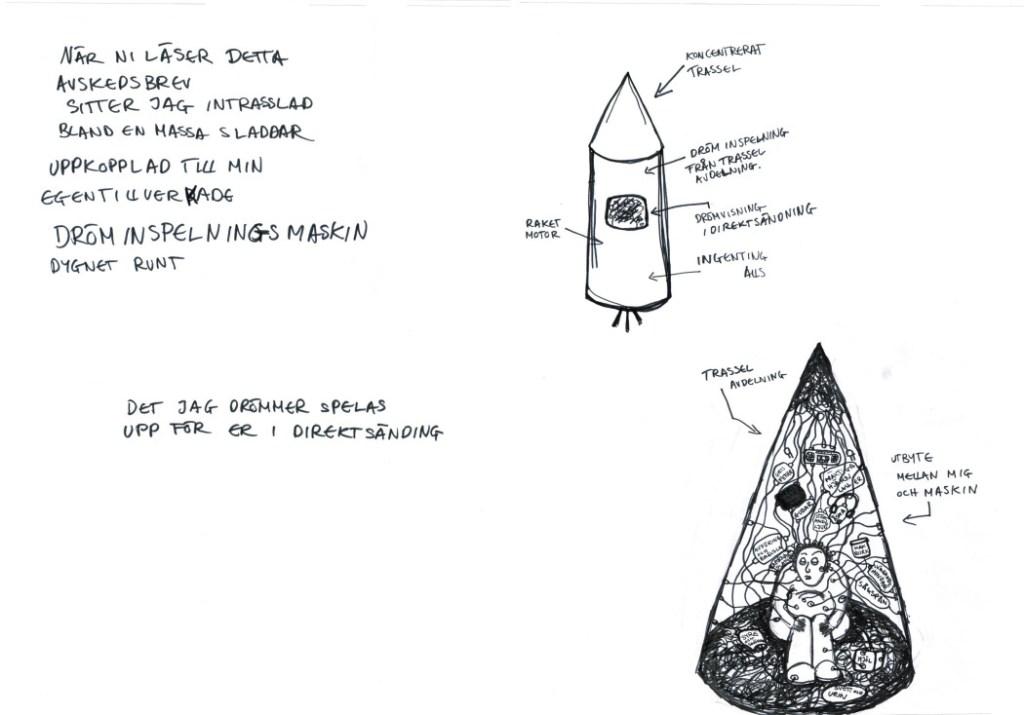 NÄR NI LÄSER DETTA
AVSKEDSBREV
SITTER JAG INTRASSLAD
BLAND EN MASSA SLADDAR
UPPKOPPLAD TILL MIN
EGENTILLVERKADE
DRÖMINSPELNINGSMASKIN
DYGNET RUNT
DET JAG DRÖMMER SPELAS
UPP FÖR ER I DIREKTSÄNDING
KONCENTRERAT
TRASSEL
DRÖMINSPELNING
FRÅN TRASSEL
AVDELNING.
DRÖMVISNING
I DIREKTSÄNDNING
RAKET
MOTOR
INGENTING
ALLS
TRASSEL
AVDELNING
UTBYTE
MELLAN MIG
OCH MASKIN
SÅGSPÅN
MJÖL
SVETT OCH
URIN